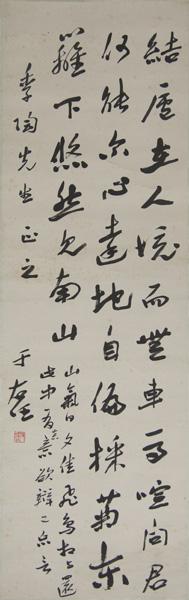 結廬在人境而無車馬喧问君
何能尔心遠地自偏採菊東
籬下悠然見南山
山氣日夕佳飛鳥相与還
此中有真意欲辯已忘言
季陶先生正之
于右任